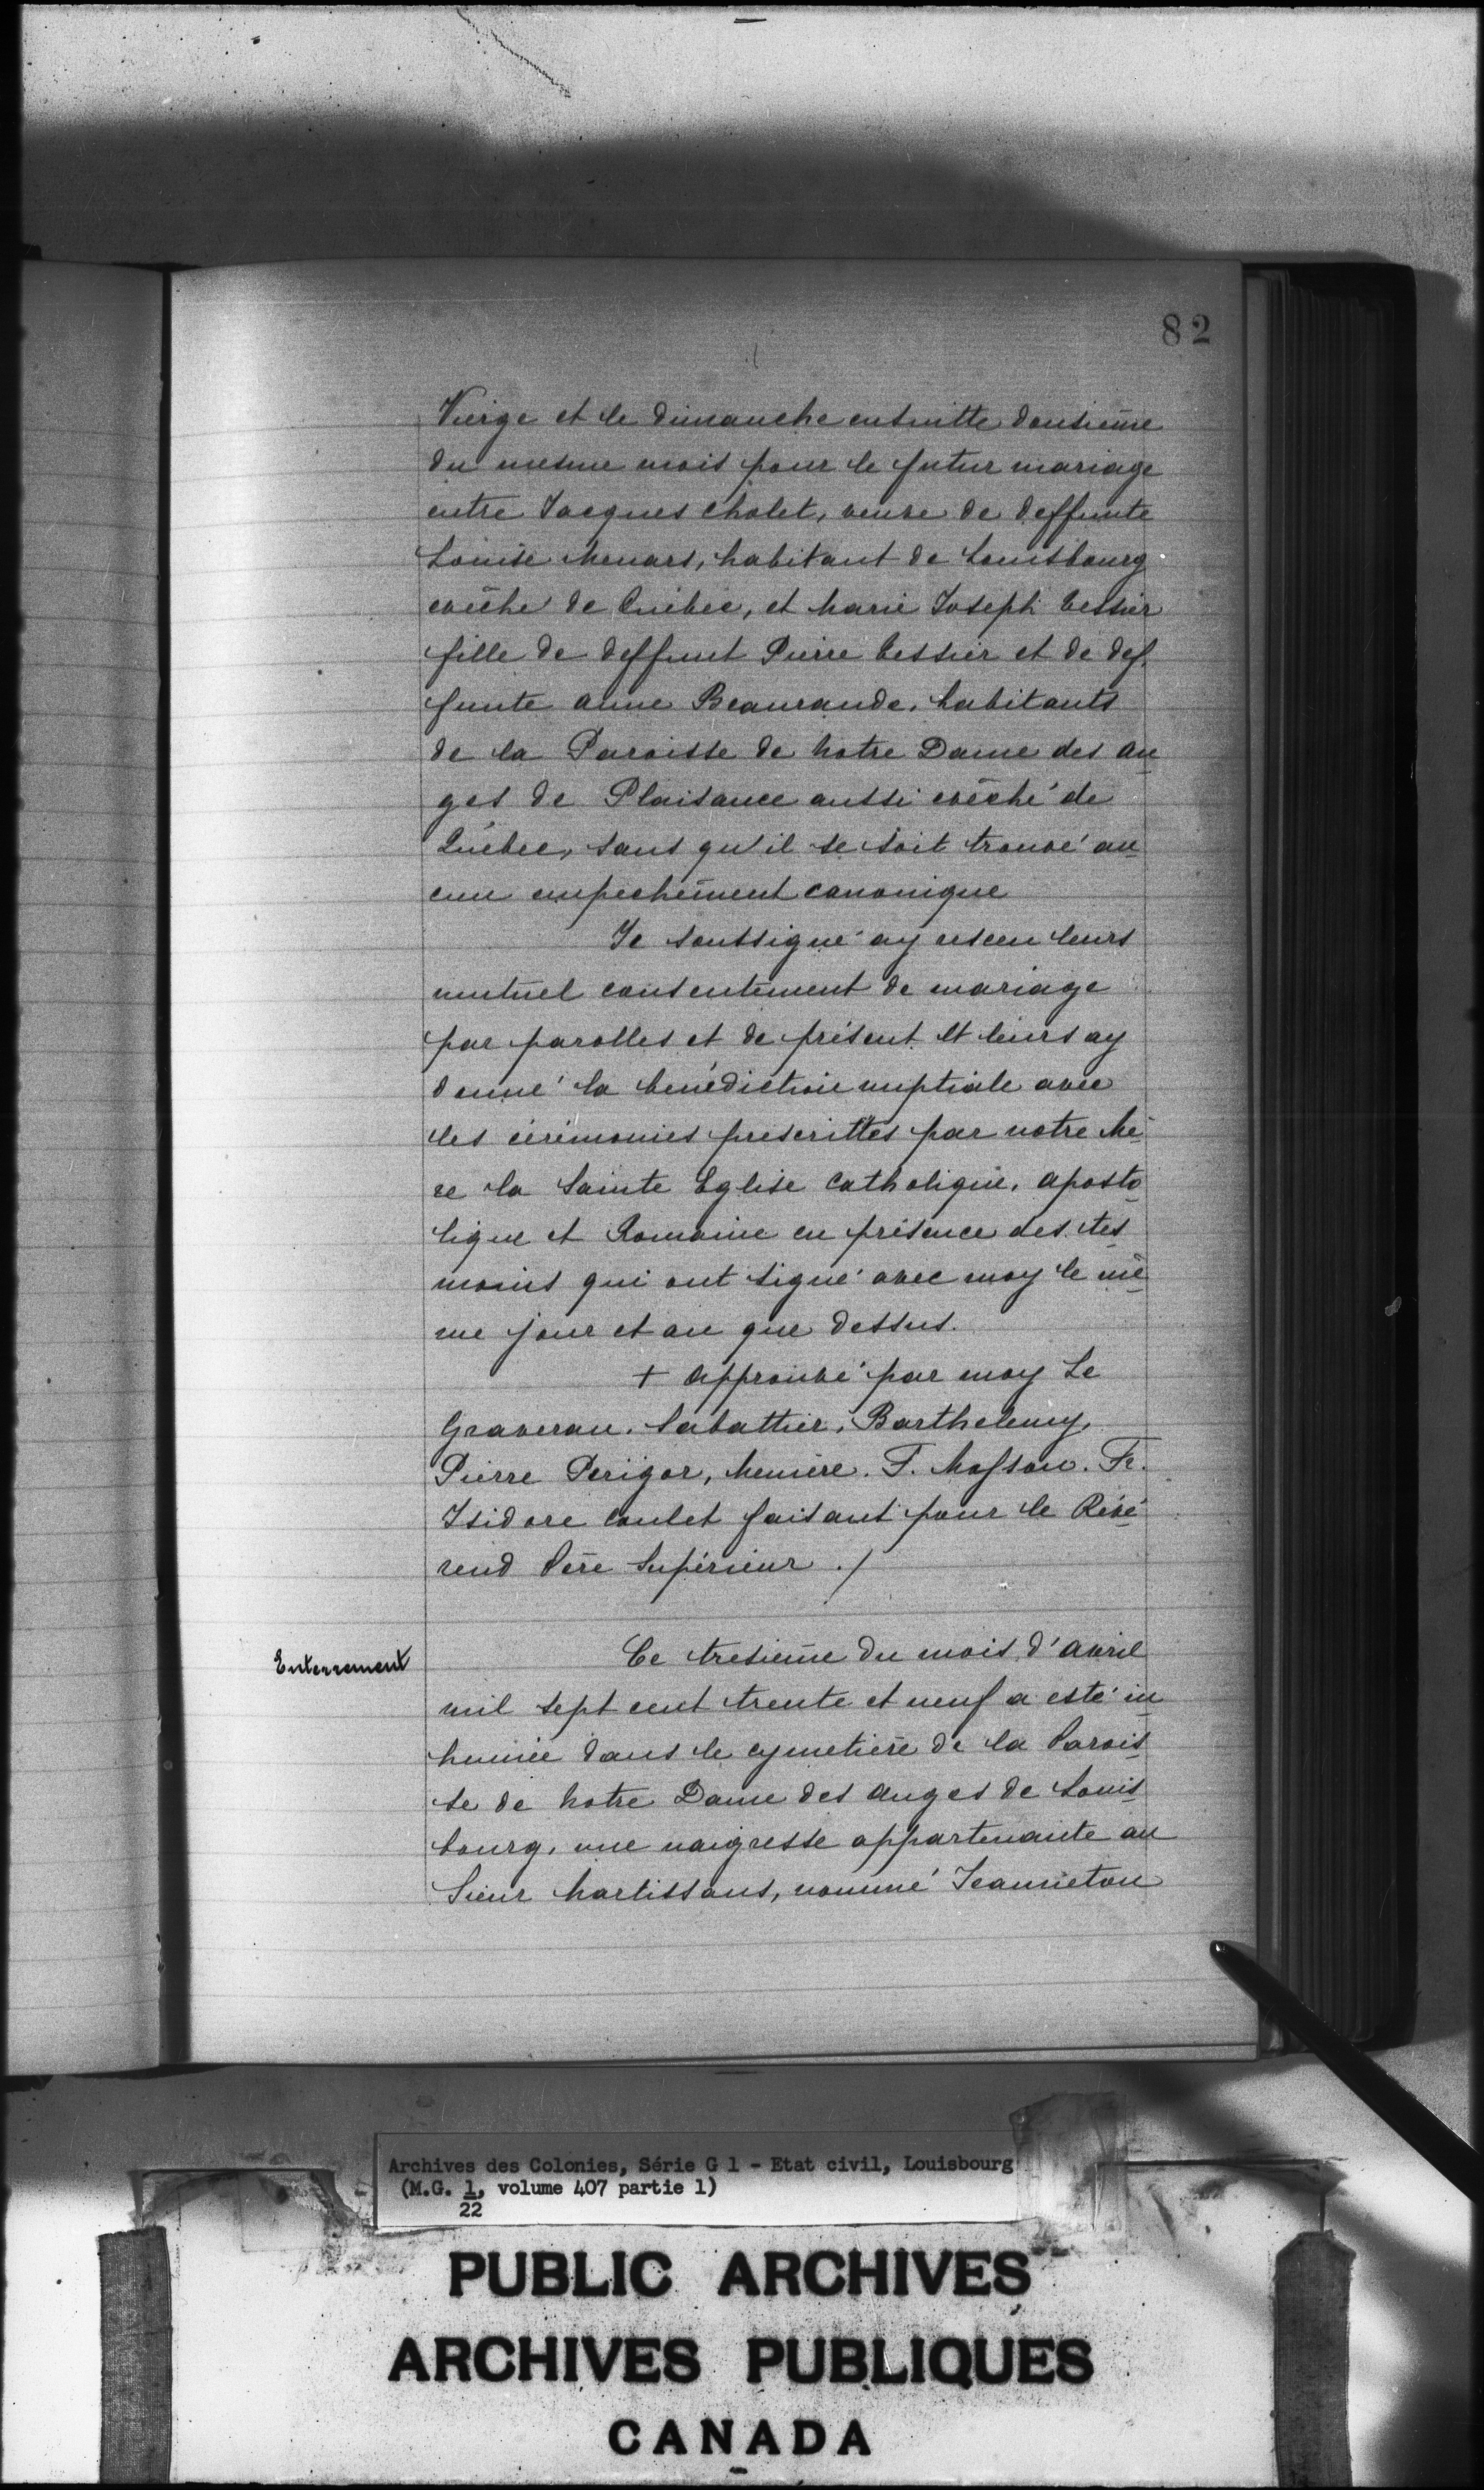 82
Vierge et le dimanche ensuitte dousieme
du mesme mois pour le futur mariage
entre Jacques Chalet, veuve de deffunte
Louise Menars, habitant de Louisbourg
evêché de Quebec, et Marie Joseph Cessier
fille de deffunt Pierre Cessier et de def
funte anne Beaurande, habitants
de la Paroisse de Notre Dame des an
ges de Plaisance aussi evêché de
Québec, sans qu'il se soit trouvé au
cun empechement canonique
Je soussigné ay resceu leurs
mutuel consentement de mariage
par parolles et de présent et leurs ay
donné la bénédiction nuptiale avec
les cérémonies prescrittes par notre Mè
re la Sainte Eglise Catholique, aposto
lique et Romaine en présence des tes
moins qui ont signé avec moy le mê
me jour et an que dessus.
+ approuvé par moy Le
Graverau, Sabattier, Barthelemy,
Pierre Perigor, Meniere. F. Masson. Fr.
Isidore Caulet faisant pour le Révé
rend Père Supérieur ./
Enterrement
Ce tresieme du mois d'avril
mil sept cent trente et neuf a esté in
humée dans le cymetiere de la Parois
se de Notre Dame des anges de Louis
bourg, une naigresse appartenante au
Sieur Martissans, nommé Jeanneton
Archives des Colonies, Série G 1 - Etat civil, Louisbourg
(M.G. 1, volume 407 partie 1)
22
PUBLIC ARCHIVES
ARCHIVES PUBLIQUES
CANADA